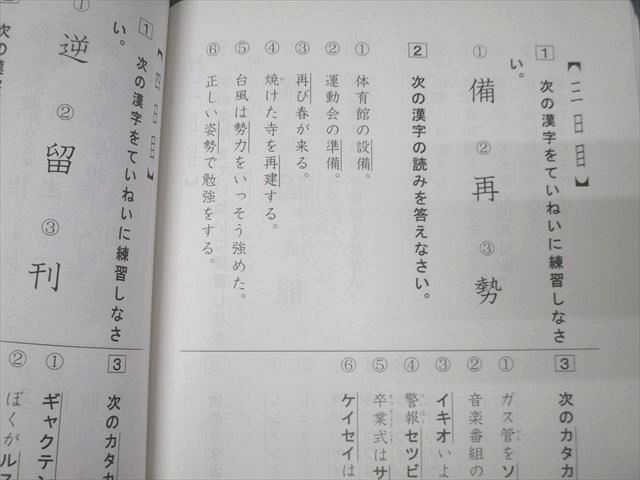 【二一日目】
1 次の漢字をていねいに練習しなさ
い。
① 備 ② 再 ③ 勢
2 次の漢字の読みを答えなさい。
① 体育館の設備。
② 運動会の準備。
③ 再び春が来る。
④ 焼けた寺を再建する。
⑤ 台風は勢力をいっそう強めた。
⑥ 正しい姿勢で勉強をする。
3 次のカタカ
① ガス管をソ
② 音楽番組の
③ イキオいよ
④ 警報セツビ
⑤ 卒業式はサ
⑥ ケイセイは
日目】
1 次の漢字をていねいに練習しなさ
い。
① 逆 ② 留 ③ 刊
次の漢
3 次のカタカ
① ギャクテン
② ぼくがルス